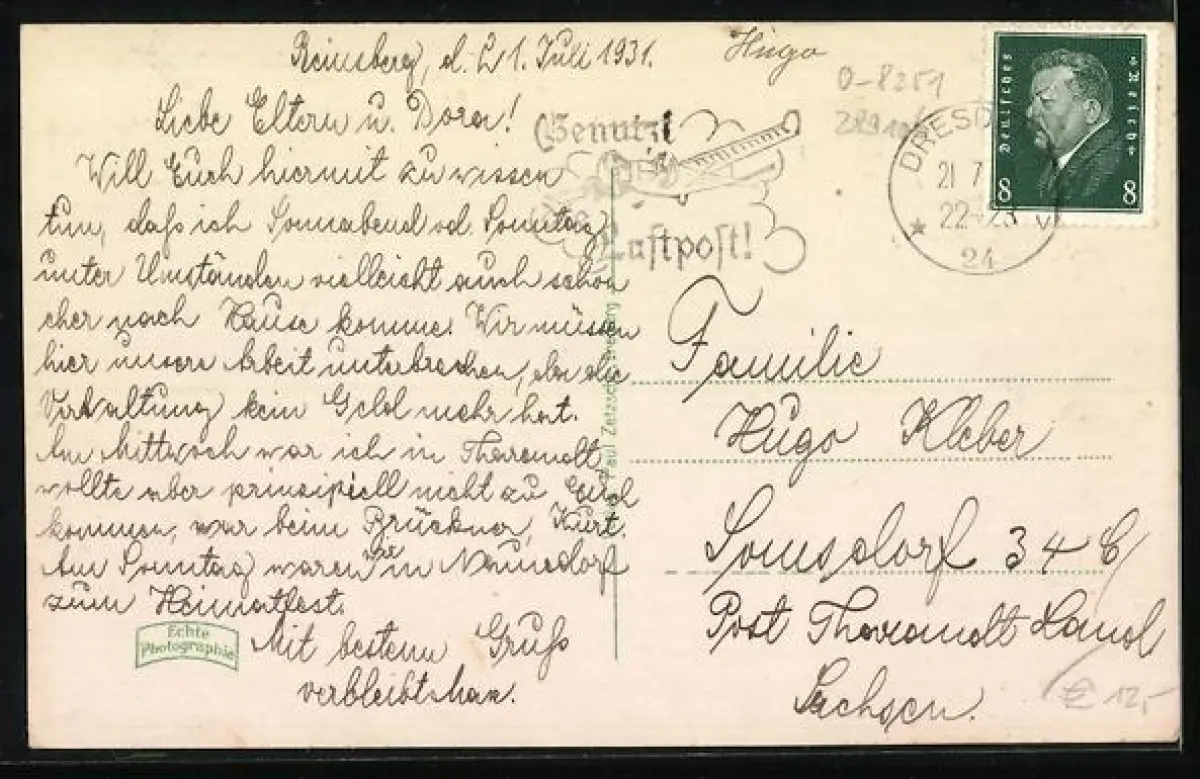 Reinsberg, d. 21. Juli 1931.
Hugo
Liebe Eltern u. Dora!
Will Euch hiermit zu wissen
tun, daß ich Sonnabend od. Sonntag
unter Umständen vielleicht auch schon
eher nach Hause komme. Wir müssen
hier unsere Arbeit unterbrechen, da die
Verwaltung kein Geld mehr hat.
Am Mittwoch war ich in Tharandt
wollte aber prinzipiell nicht zu Euch
kommen, war beim Brückner, Kurt.
Am Sonntag waren wir in Naundorf
zum Heimatfest.
Mit bestem Gruß
verbleibt Max.
Echte
Photographie
Benutzt
Luftpost!
Paul
0-8251
DRESD
21 7
22-23 V
24
Deutsches Reich
8 8
Familie
Hugo Kleber
Somsdorf 34 C
Post Tharandt Land
Sachsen.
€ 12,-